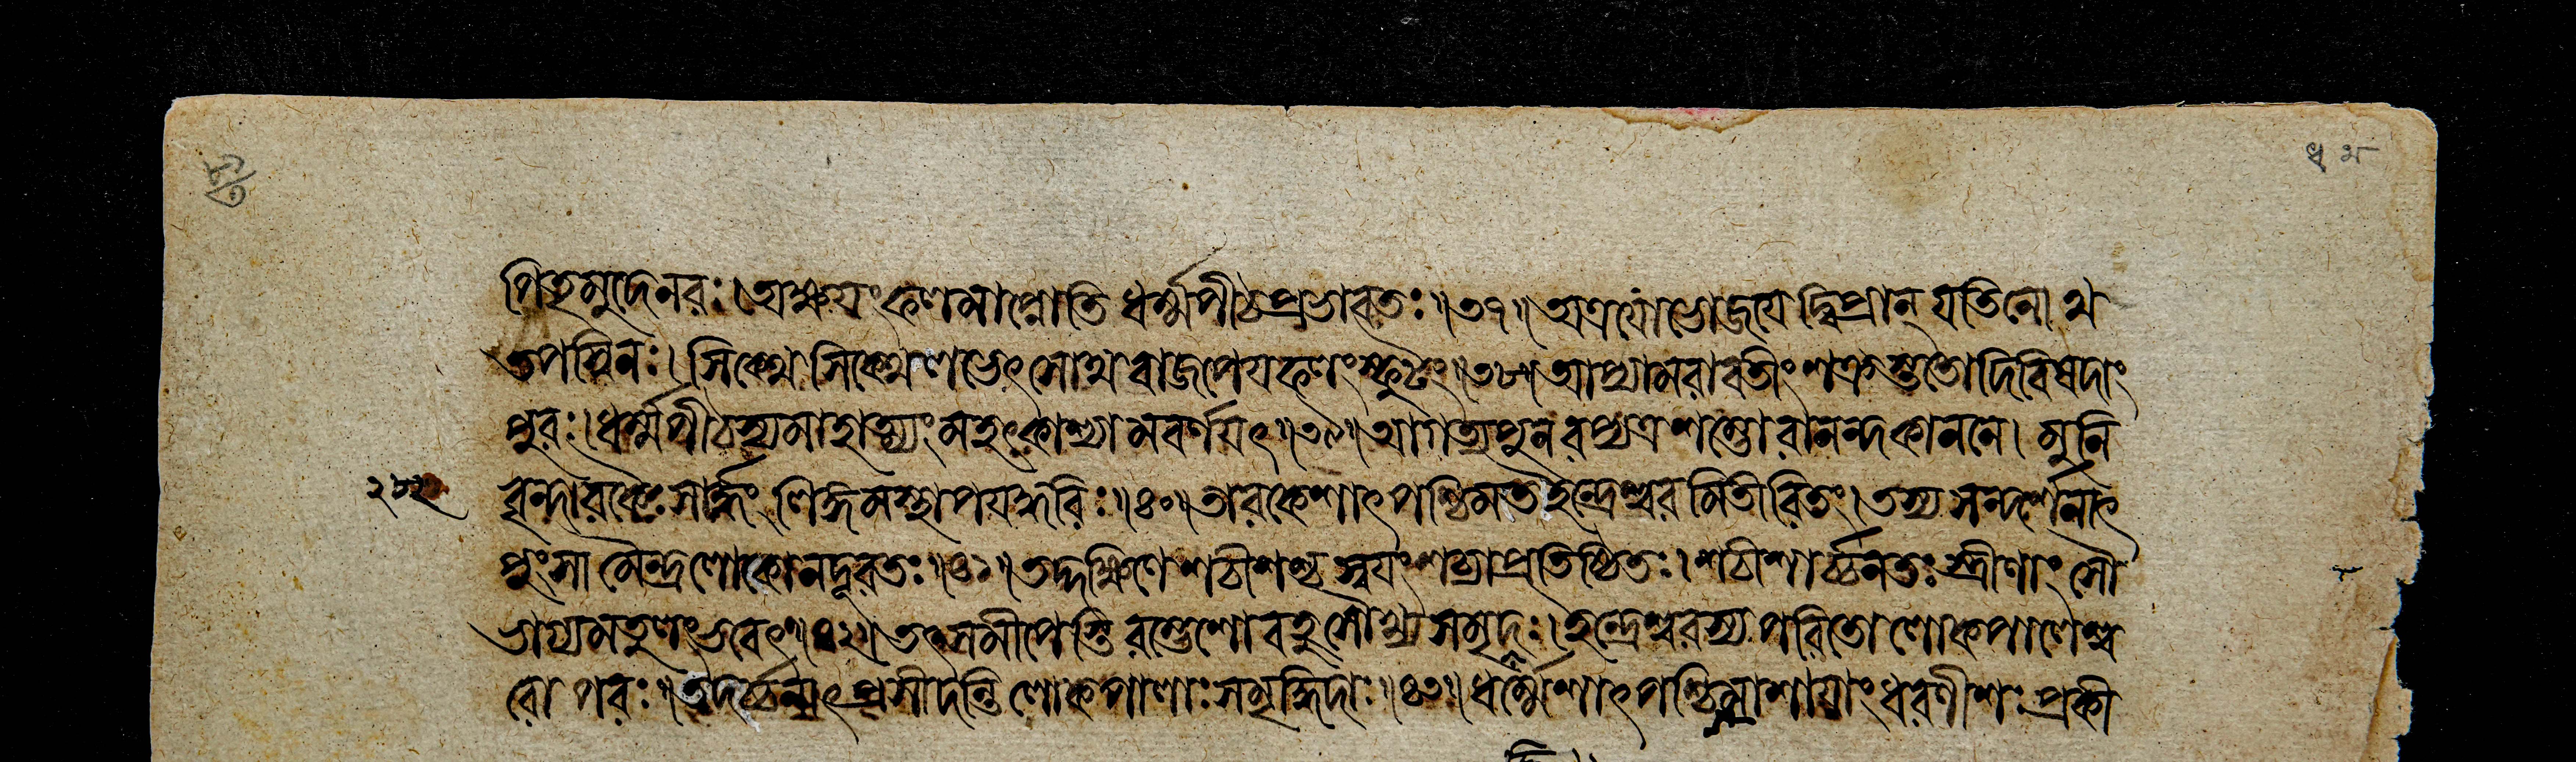 পিতৃমুদেনরঃ। অক্ষয়ংফলমাপ্নোতি ধর্ম্মপীঠপ্রভাবতঃ॥৩৭॥ অত্রযোভোজয়েদ্বিপ্রান্ যতিনোথ
তপস্বিনঃ। সিক্থেসিক্থেলভেৎ সোথ বাজপেয়ফলংস্ফুটং॥৩৮॥ আপ্যামরাবতীং শক্রস্ততোদিবিষদাং
পুরঃ। ধর্ম্মপীঠস্যমাহাত্ম্যং মহৎকাশ্যামবর্ণয়ৎ॥৩৯॥ আগত্যপুনরপ্যত্র শম্ভোরানন্দকাননে। মুনি
বৃন্দারকৈঃসার্দ্ধং লিঙ্গমস্থাপয়দ্ধরিঃ॥৪০॥ তারকেশাৎপশ্চিমতইন্দ্রেশ্বরমিতীরিতং। তস্যসন্দর্শনাৎ
পুংসামৈন্দ্রলোকোনদূরতঃ॥৪১॥ তদ্দক্ষিণে শচীশশ্চ স্বয়ংশচ্যাপ্রতিষ্ঠিতঃ। শচীশার্চ্চনতঃস্ত্রীণাং সৌ
ভাগ্যমতুলংভবেৎ॥৪২॥ তৎসমীপেস্তি রম্ভেশোবহুসৌখ্যসমৃদ্ধিদঃ। ইন্দ্রেশ্বরস্যপরিতো লোকপালেশ্ব
রোপরঃ॥ তদর্চ্চনাৎপ্রসীদন্তি লোকপালাঃসমৃদ্ধিদাঃ॥৪৩॥ ধর্ম্মেশাৎপশ্চিমাশায়াং ধরণীশঃ প্রকী